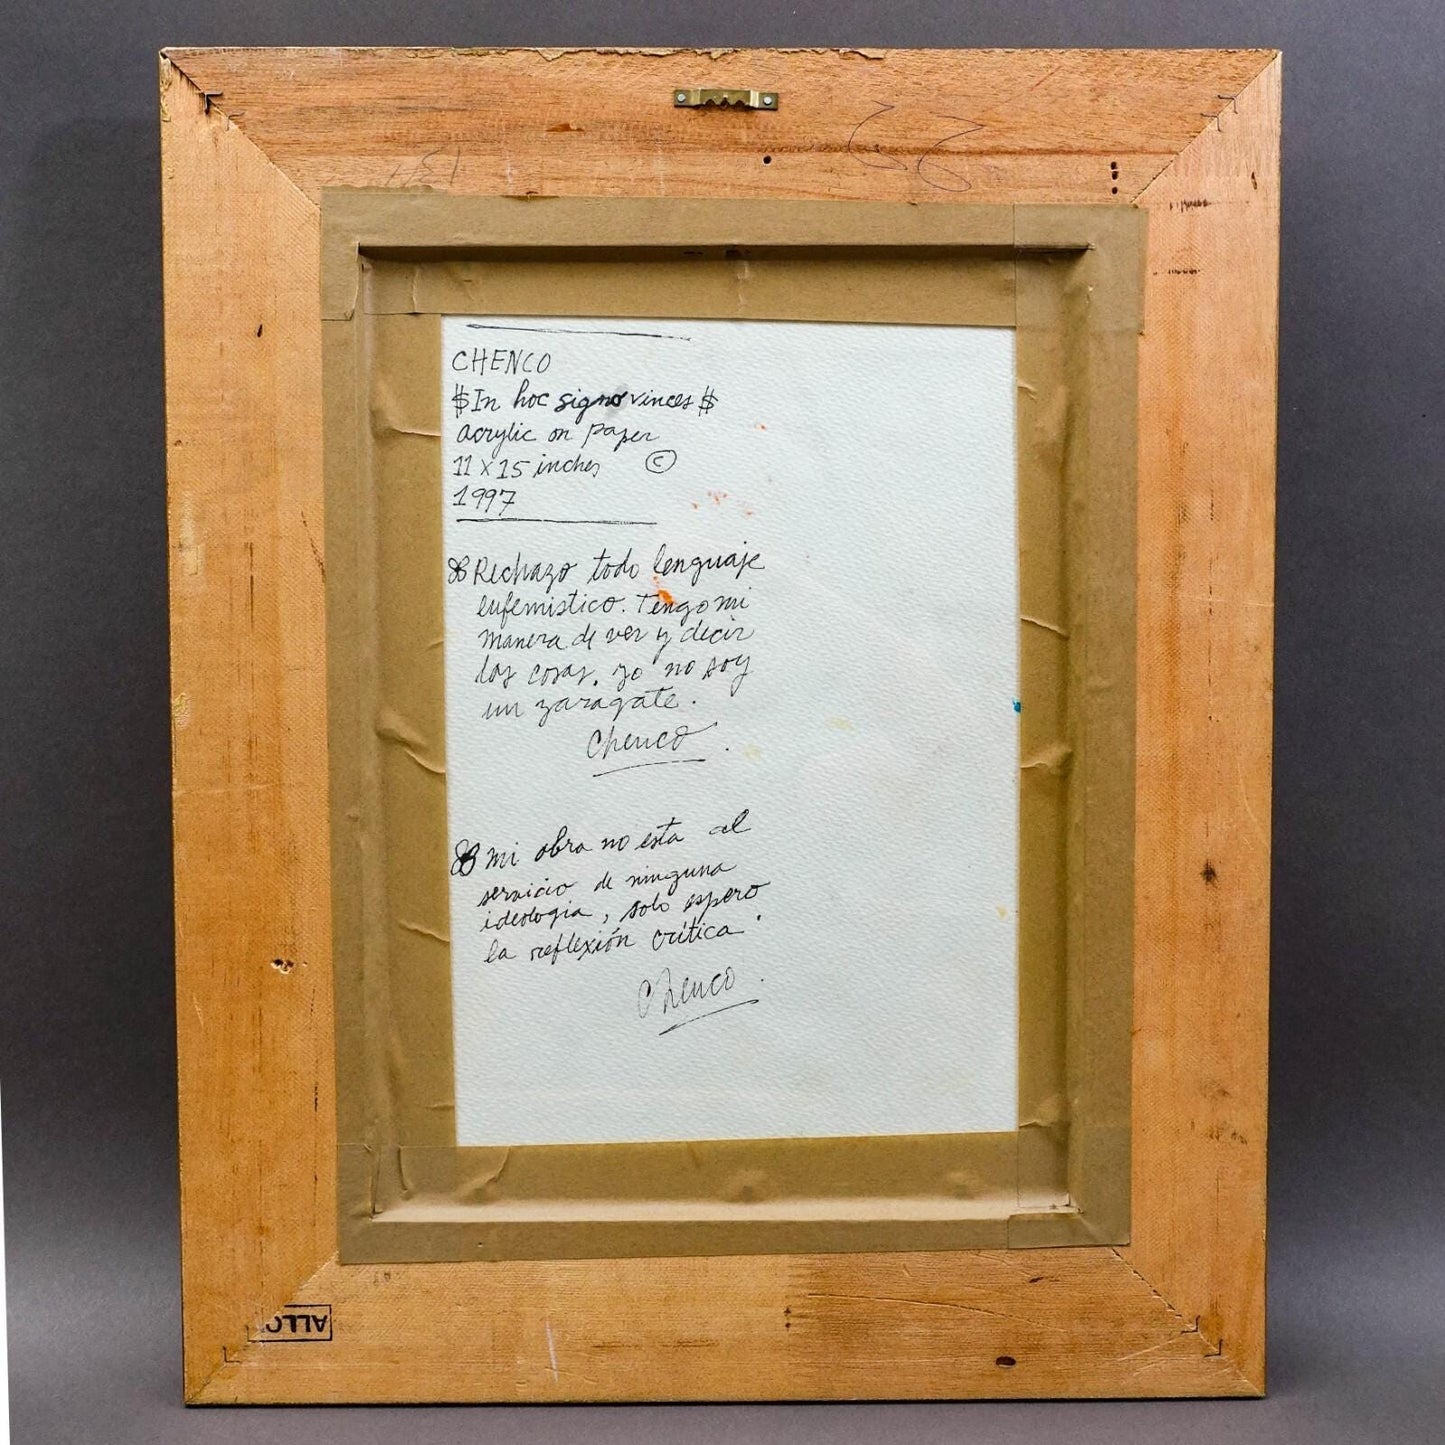 CHENCO
$In hoc signo vinces$
acrylic on paper
11 x 15 inches ©
1997
Rechazo todo lenguaje
eufemistico. Tengo mi
manera de ver y decir
las cosas. yo no soy
un zaragate.
Chenco.
mi obra no esta al
servicio de ninguna
ideologia, solo espero
la reflexión crítica.
Chenco.